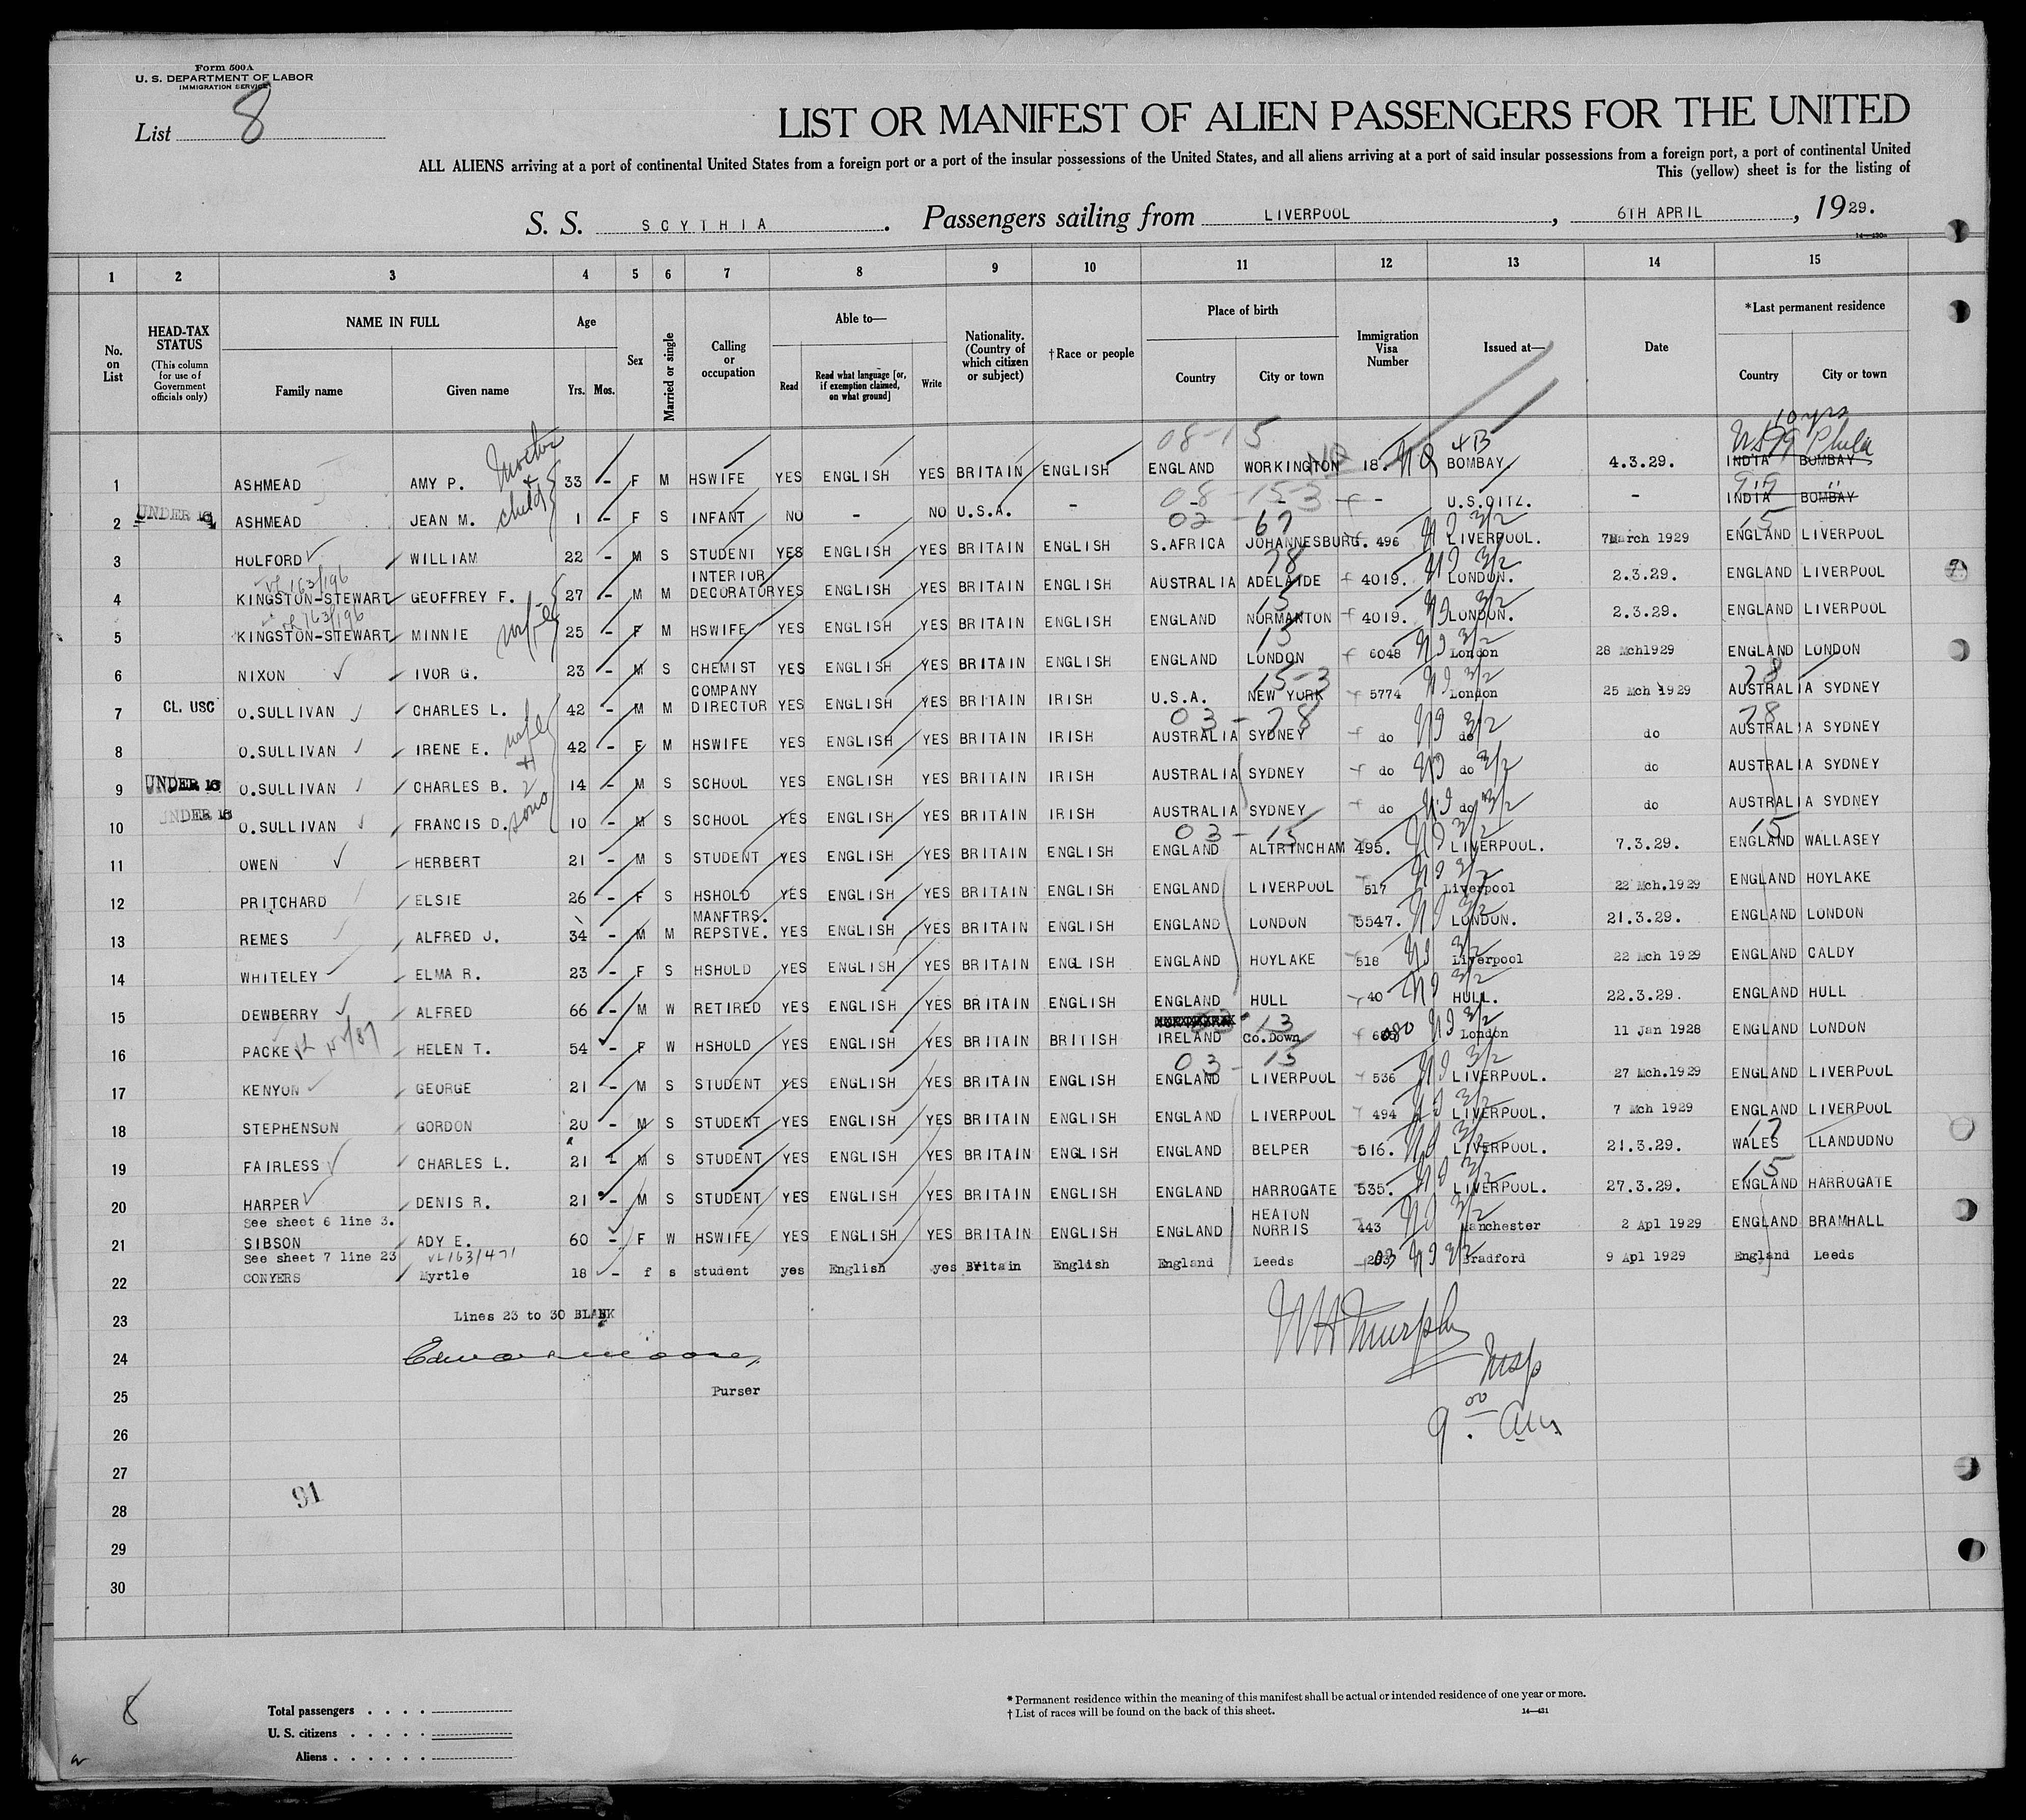 Form 500A
U. S. DEPARTMENT OF LABOR
IMMIGRATION SERVICE
List 8
LIST OR MANIFEST OF ALIEN PASSENGERS FOR THE UNITED
ALL ALIENS arriving at a port of continental United States from a foreign port or a port of the insular possessions of the United States, and all aliens arriving at a port of said insular possessions from a foreign port, a port of continental United
This (yellow) sheet is for the listing of
S. S. SCYTHIA. Passengers sailing from LIVERPOOL, 6TH APRIL, 1929.
1 2 3 4 5 6 7 8 9 10 11 12 13 14 15
No. on List
HEAD-TAX STATUS (This column for use of Government officials only)
NAME IN FULL Family name Given name
Age Yrs. Mos.
Sex
Married or single
Calling or occupation
Able to— Read Read what language [or, if exemption claimed, on what ground] Write
Nationality. (Country of which citizen or subject)
†Race or people
Place of birth Country City or town
Immigration Visa Number
Issued at—
Date
*Last permanent residence Country City or town
08-15 4B 10 yrs
USA Phila
1 ASHMEAD AMY P. Mother & child 33 - F M HSWIFE YES ENGLISH YES BRITAIN ENGLISH ENGLAND WORKINGTON 18. NQ BOMBAY. 4.3.29. INDIA BOMBAY
08-15-3
2 UNDER 16 ASHMEAD JEAN M. 1 - F S INFANT NO - NO U.S.A. - - - - U.S.CITZ. - INDIA BOMBAY
02-67 3/2 15
3 HOLFORD WILLIAM 22 - M S STUDENT YES ENGLISH YES BRITAIN ENGLISH S.AFRICA JOHANNESBURG. 496 LIVERPOOL. 7March 1929 ENGLAND LIVERPOOL
VL 163/196 78 3/2
4 KINGSTON-STEWART GEOFFREY F. 27 - M M INTERIOR DECORATOR YES ENGLISH YES BRITAIN ENGLISH AUSTRALIA ADELAIDE 4019. LONDON. 2.3.29. ENGLAND LIVERPOOL
VL 163/196 15 3/2
5 KINGSTON-STEWART MINNIE wife 25 - F M HSWIFE YES ENGLISH YES BRITAIN ENGLISH ENGLAND NORMANTON 4019. LONDON. 2.3.29. ENGLAND LIVERPOOL
15 3/2
6 NIXON IVOR G. 23 - M S CHEMIST YES ENGLISH YES BRITAIN ENGLISH ENGLAND LONDON 6048 London 28 Mch1929 ENGLAND LONDON
15-3 3/2 78
7 CL. USC O.SULLIVAN CHARLES L. 42 - M M COMPANY DIRECTOR YES ENGLISH YES BRITAIN IRISH U.S.A. NEW YORK 5774 London 25 Mch 1929 AUSTRALIA SYDNEY
03-78 3/2 78
8 O.SULLIVAN IRENE E. wife & 42 - F M HSWIFE YES ENGLISH YES BRITAIN IRISH AUSTRALIA SYDNEY do do do AUSTRALIA SYDNEY
9 UNDER 16 O.SULLIVAN CHARLES B. 2 sons 14 - M S SCHOOL YES ENGLISH YES BRITAIN IRISH AUSTRALIA SYDNEY do do 3/2 do AUSTRALIA SYDNEY
10 UNDER 16 O.SULLIVAN FRANCIS D. 10 - M S SCHOOL YES ENGLISH YES BRITAIN IRISH AUSTRALIA SYDNEY do do 3/2 do AUSTRALIA SYDNEY
03-15 3/2 15
11 OWEN HERBERT 21 - M S STUDENT YES ENGLISH YES BRITAIN ENGLISH ENGLAND ALTRINCHAM 495. LIVERPOOL. 7.3.29. ENGLAND WALLASEY
12 PRITCHARD ELSIE 26 - F S HSHOLD YES ENGLISH YES BRITAIN ENGLISH ENGLAND LIVERPOOL 517 Liverpool 22 Mch.1929 ENGLAND HOYLAKE
13 REMES ALFRED J. 34 - M M MANFTRS. REPSTVE. YES ENGLISH YES BRITAIN ENGLISH ENGLAND LONDON 5547. LONDON. 21.3.29. ENGLAND LONDON
14 WHITELEY ELMA R. 23 - F S HSHOLD YES ENGLISH YES BRITAIN ENGLISH ENGLAND HOYLAKE 518 Liverpool 22 Mch 1929 ENGLAND CALDY
15 DEWBERRY ALFRED 66 - M W RETIRED YES ENGLISH YES BRITAIN ENGLISH ENGLAND HULL 40 HULL. 22.3.29. ENGLAND HULL
16 PACKE HELEN T. 54 - F W HSHOLD YES ENGLISH YES BRITAIN BRITISH IRELAND Co.Down London 11 Jan 1928 ENGLAND LONDON
03-15 3/2
17 KENYON GEORGE 21 - M S STUDENT YES ENGLISH YES BRITAIN ENGLISH ENGLAND LIVERPOOL 536 LIVERPOOL. 27 Mch.1929 ENGLAND LIVERPOOL
18 STEPHENSON GORDON 20 - M S STUDENT YES ENGLISH YES BRITAIN ENGLISH ENGLAND LIVERPOOL 494 LIVERPOOL. 7 Mch 1929 ENGLAND LIVERPOOL
17
19 FAIRLESS CHARLES L. 21 - M S STUDENT YES ENGLISH YES BRITAIN ENGLISH ENGLAND BELPER 516. LIVERPOOL. 21.3.29. WALES LLANDUDNO
15
20 HARPER DENIS R. 21 - M S STUDENT YES ENGLISH YES BRITAIN ENGLISH ENGLAND HARROGATE 535. LIVERPOOL. 27.3.29. ENGLAND HARROGATE
See sheet 6 line 3.
21 SIBSON ADY E. 60 - F W HSWIFE YES ENGLISH YES BRITAIN ENGLISH ENGLAND HEATON NORRIS 443 Manchester 2 Apl 1929 ENGLAND BRAMHALL
See sheet 7 line 23 VL163/471
22 CONYERS Myrtle 18 - f s student yes English yes Britain English England Leeds Bradford 9 Apl 1929 England Leeds
23 Lines 23 to 30 BLANK
WHMurphy
24
Insp
25 Purser
9.00 am
26
27
28 91
29
30
8
Total passengers
U. S. citizens
Aliens
* Permanent residence within the meaning of this manifest shall be actual or intended residence of one year or more.
† List of races will be found on the back of this sheet.
14—431